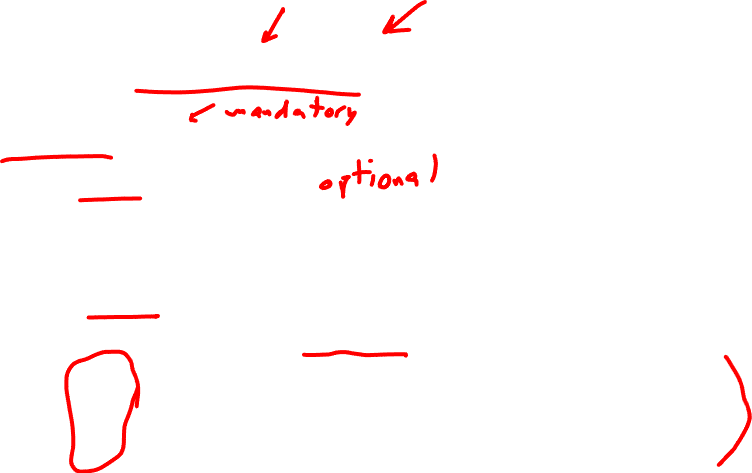 mandatory
optional